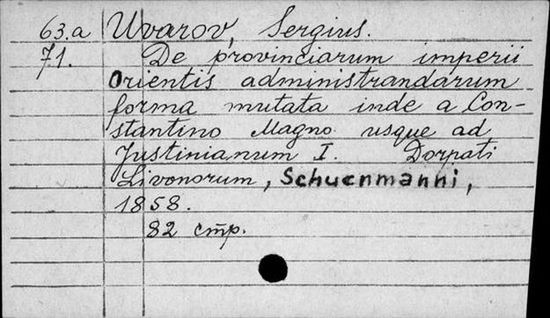 63.a Uvarov, Sergius.
71. De provinciarum imperii
Orientis administrandarum
forma mutata inde a Con-
stantino Magno usque ad
Justinianum I. Dorpati
Livonorum, Schuenmanni,
1858.
82 стр.